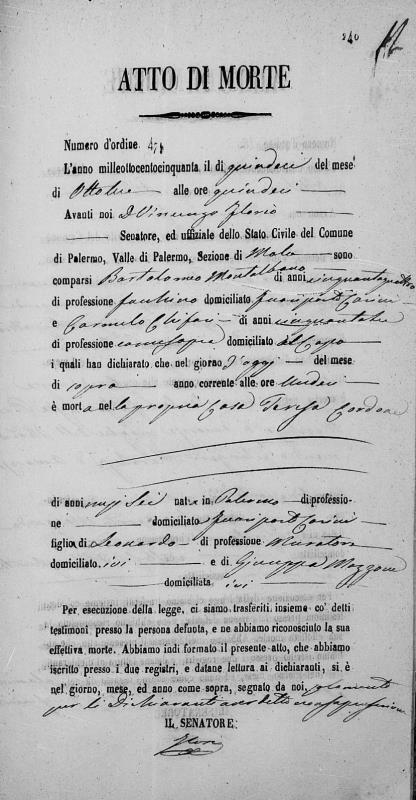 240
ATTO DI MORTE
Numero d'ordine 474
L'anno milleottocentocinquanta il dì quindeci del mese
di Ottobre alle ore quindeci
Avanti noi D. Vincenzo Florio
Senatore, ed uffiziale dello Stato Civile del Comune
di Palermo, Valle di Palermo, Sezione di Molo sono
comparsi Bartolomeo Montalbano di anni cinquantaquattro
di professione domiciliato fuori porta Carini
e Carmelo Clifari di anni cinquantatre
di professione come sopra domiciliato al Capo
i quali han dichiarato che nel giorno d'oggi del mese
di sopra anno corrente alle ore undeci
è morta nella propria Casa Teresa Cordone
di anni mesi sei nata in Palermo di professio-
ne domiciliato fuori porta Carini
figlia di Leonardo di professione Muratore
domiciliato ivi e di Giuseppa Mazzone
domiciliata ivi
Per esecuzione della legge, ci siamo trasferiti insieme co' detti
testimoni presso la persona defuota, e ne abbiamo riconosciuto la sua
effettiva morte. Abbiamo indi formato il presente atto, che abbiamo
iscritto presso i due registri, e datane lettura ai dichiaranti, si è
nel giorno, mese, ed anno come sopra, segnato da noi, solamente
per li Dichiaranti aver detto non saper scrivere
IL SENATORE
Florio